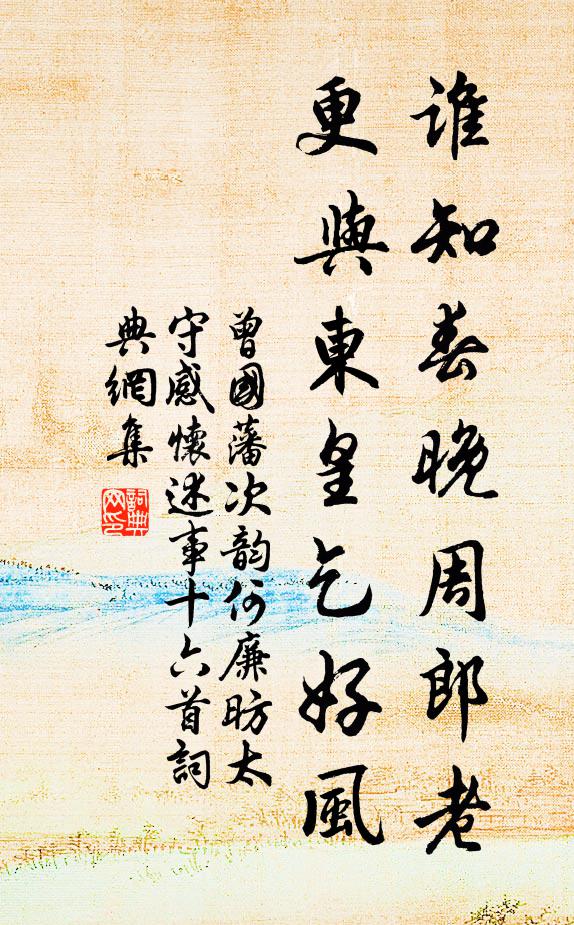 誰知春晚周郎老
更與東皇乞好風
曾國藩次韵何廉昉太
守感懷述事十六首詞
典網集
詞典
网印